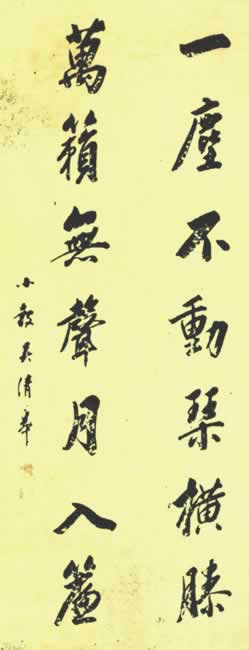 一塵不動琴橫膝
萬籟無聲月入簾
小敍吳清華